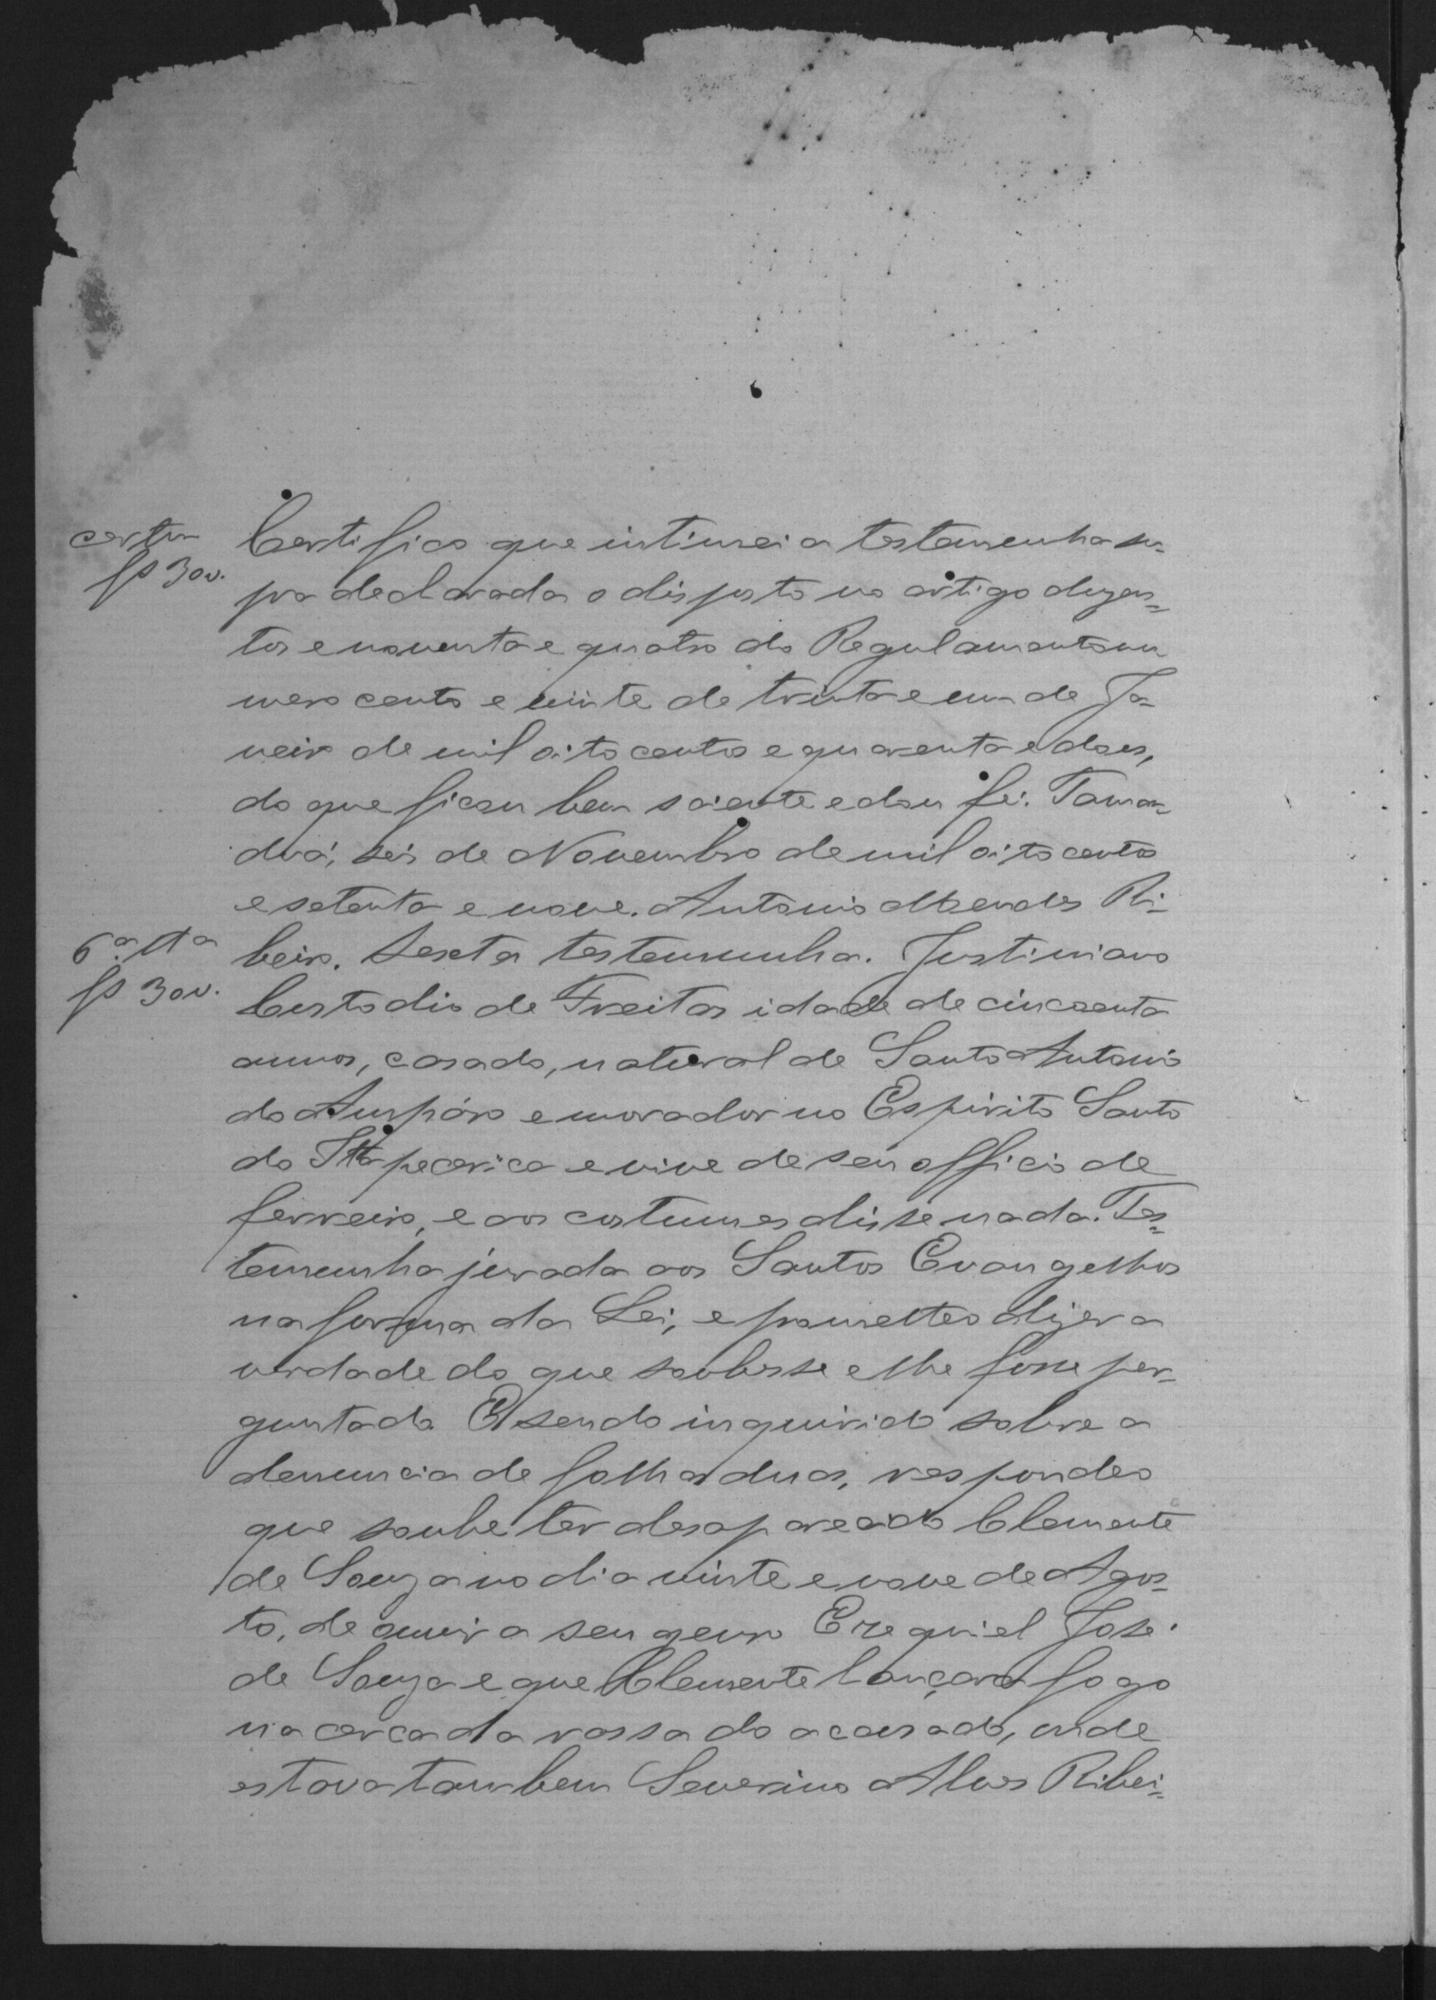 certm
fs 30v.
Certifico que intimei a testemunha su-
pra declarada o disposto no artigo duzen-
tos e noventa e quatro do Regulamento nu
mero cento e vinte de trinta e um de Ja-
neiro de mil oito centos e quarenta e does,
do que ficou bem sciente e dou fé. Taman-
duá, seis de Novembro de mil oito centos
e setenta e nove. Antonio Mendes Ri-
6ª. tta
fs 30v.
beiro. Sexta testemunha. Justiniano
Custodio de Freitas idade de cincoenta
annos, casado, natural de Santo Antonio
do Ampáro e morador no Espirito Santo
do Itapecerica e vive de seu officio de
ferreiro, e aos costumes disse nada. Tes-
temunha jurada aos Santos Evangelhos
na forma da Lei, e prometteo dizer a
verdade do que soubesse e lhe fosse per-
guntado. E sendo inquirido sobre a
denuncia de folhas duas, respondeo
que soube ter desaparecido Clemente
de Souza no dia vinte e nove de Agos-
to, de ouvir a seu genro Ezequiel José
de Souza e que Clemente lançara fogo
na cerca da rossa do acusado, onde
estava tambem Severino Alves Ribei-